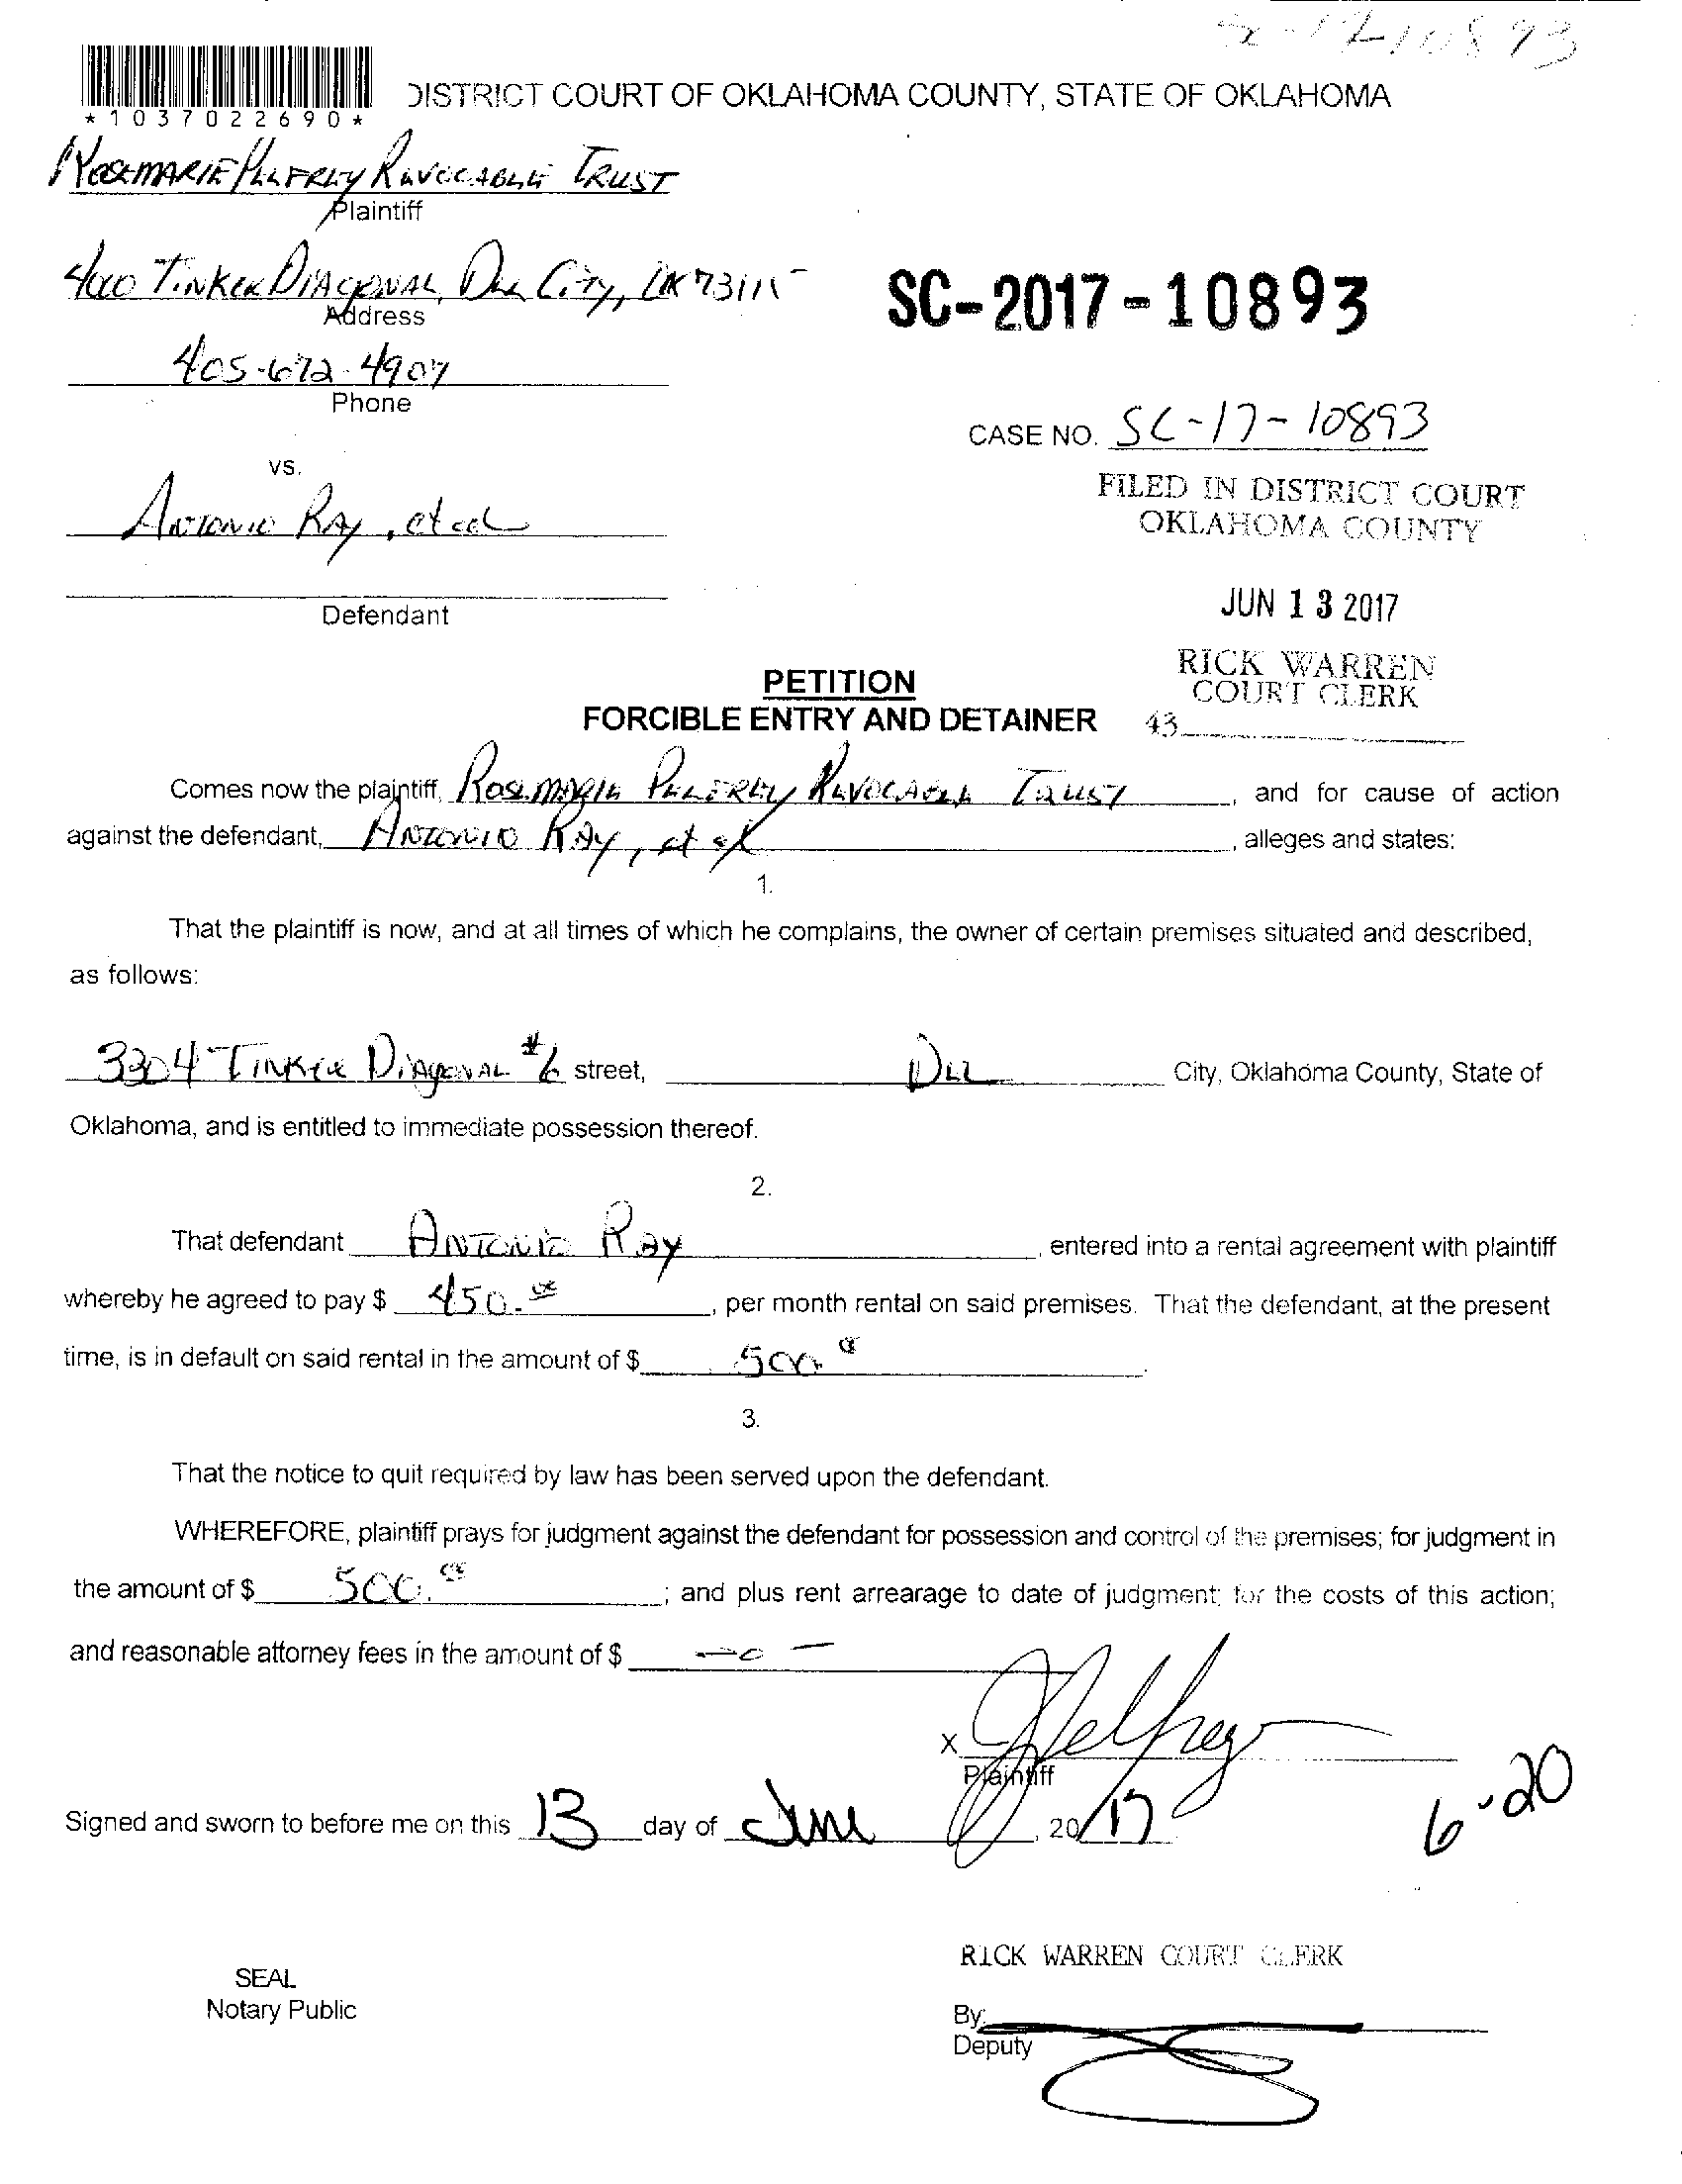 SC-1710893
DISTRICT COURT OF OKLAHOMA COUNTY, STATE OF OKLAHOMA
*1037022690*
ROSEMARIE PELFREY REVOCABLE TRUST
Plaintiff
4000 TINKER DIAGONAL, DEL CITY, OK 73115
Address
SC-2017-10893
405-672-4907
Phone
CASE NO. SC-17-10893
vs.
FILED IN DISTRICT COURT
OKLAHOMA COUNTY
ANTONIO RAY, et al
JUN 13 2017
Defendant
RICK WARREN
COURT CLERK
43
PETITION
FORCIBLE ENTRY AND DETAINER
Comes now the plaintiff, ROSEMARIE PELFREY REVOCABLE TRUST, and for cause of action
against the defendant, ANTONIO RAY, et al, alleges and states:
1.
That the plaintiff is now, and at all times of which he complains, the owner of certain premises situated and described,
as follows:
3304 TINKER DIAGONAL #6 street, DEL City, Oklahoma County, State of
Oklahoma, and is entitled to immediate possession thereof.
2.
That defendant ANTONIO RAY, entered into a rental agreement with plaintiff
whereby he agreed to pay $ 450.00, per month rental on said premises. That the defendant, at the present
time, is in default on said rental in the amount of $ 500.00.
3.
That the notice to quit required by law has been served upon the defendant.
WHEREFORE, plaintiff prays for judgment against the defendant for possession and control of the premises; for judgment in
the amount of $ 500.00; and plus rent arrearage to date of judgment; for the costs of this action;
and reasonable attorney fees in the amount of $ -0-
X
Plaintiff
Signed and sworn to before me on this 13 day of June, 2017
6-20
RICK WARREN COURT CLERK
SEAL
Notary Public
By:
Deputy